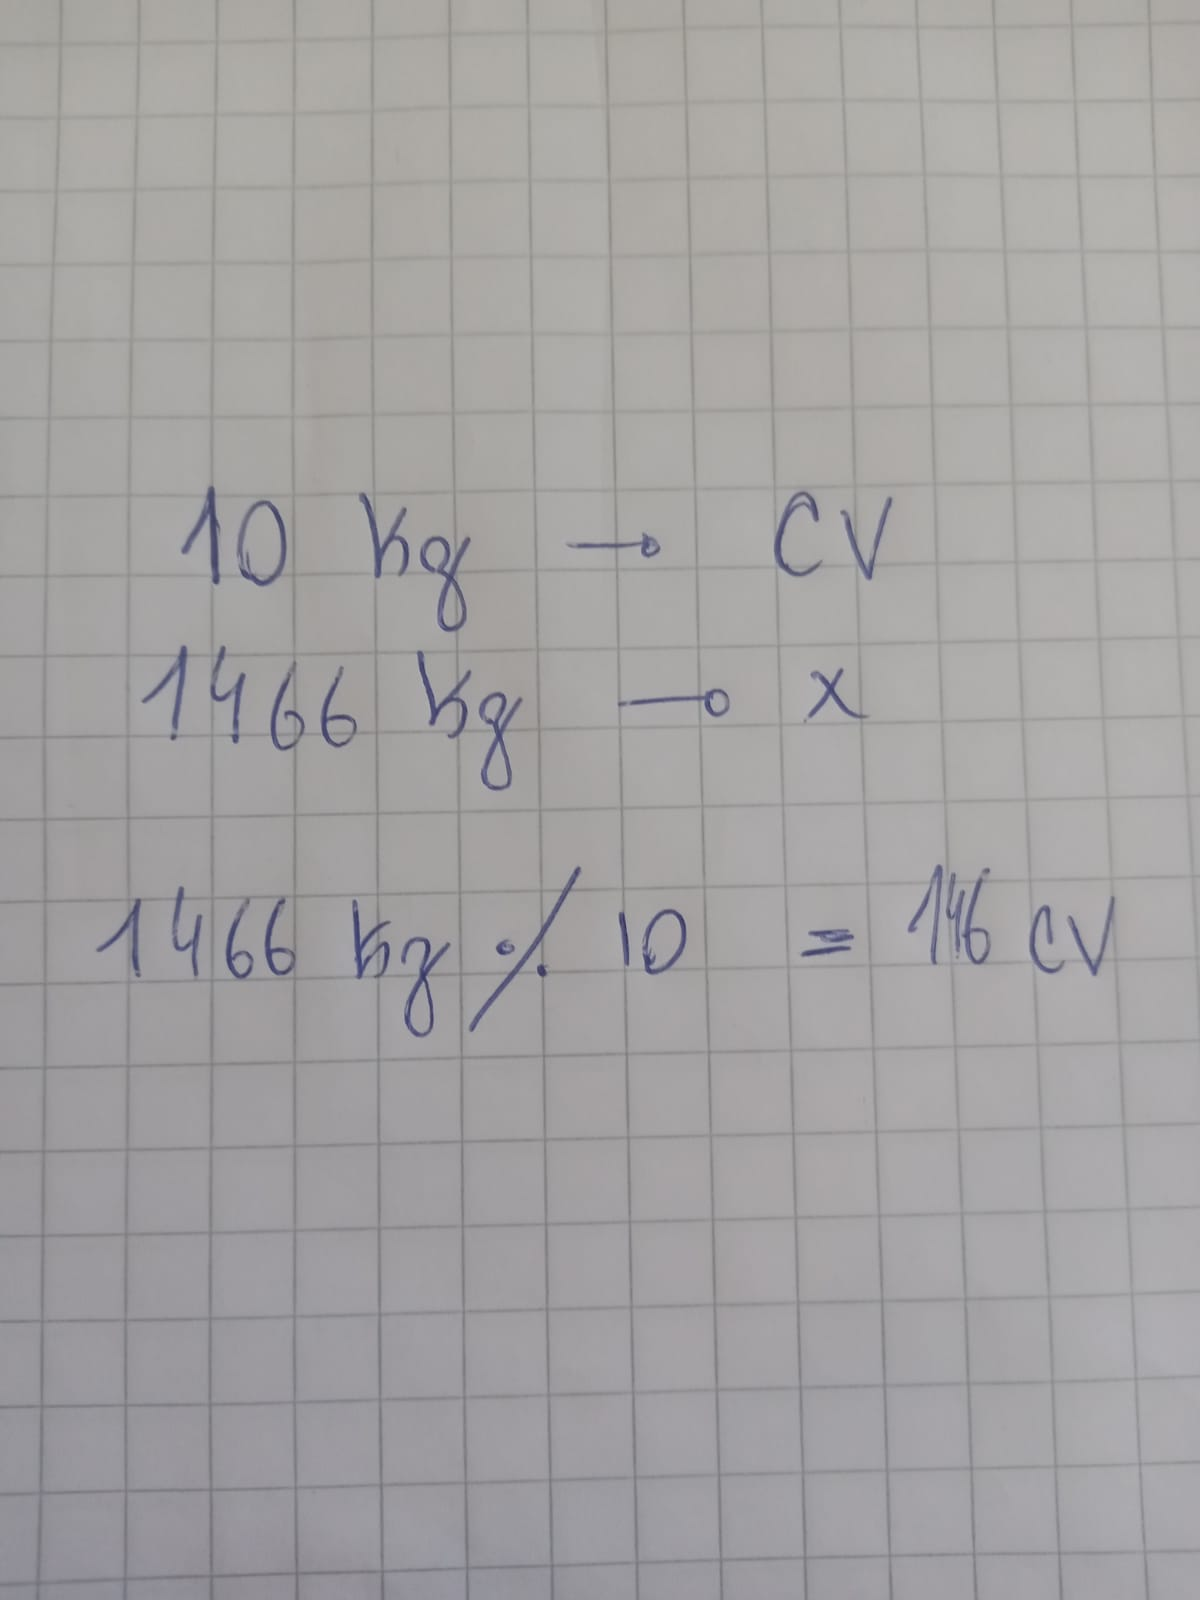 10 kg → CV
1466 kg → x
1466 kg % 10 = 146 CV